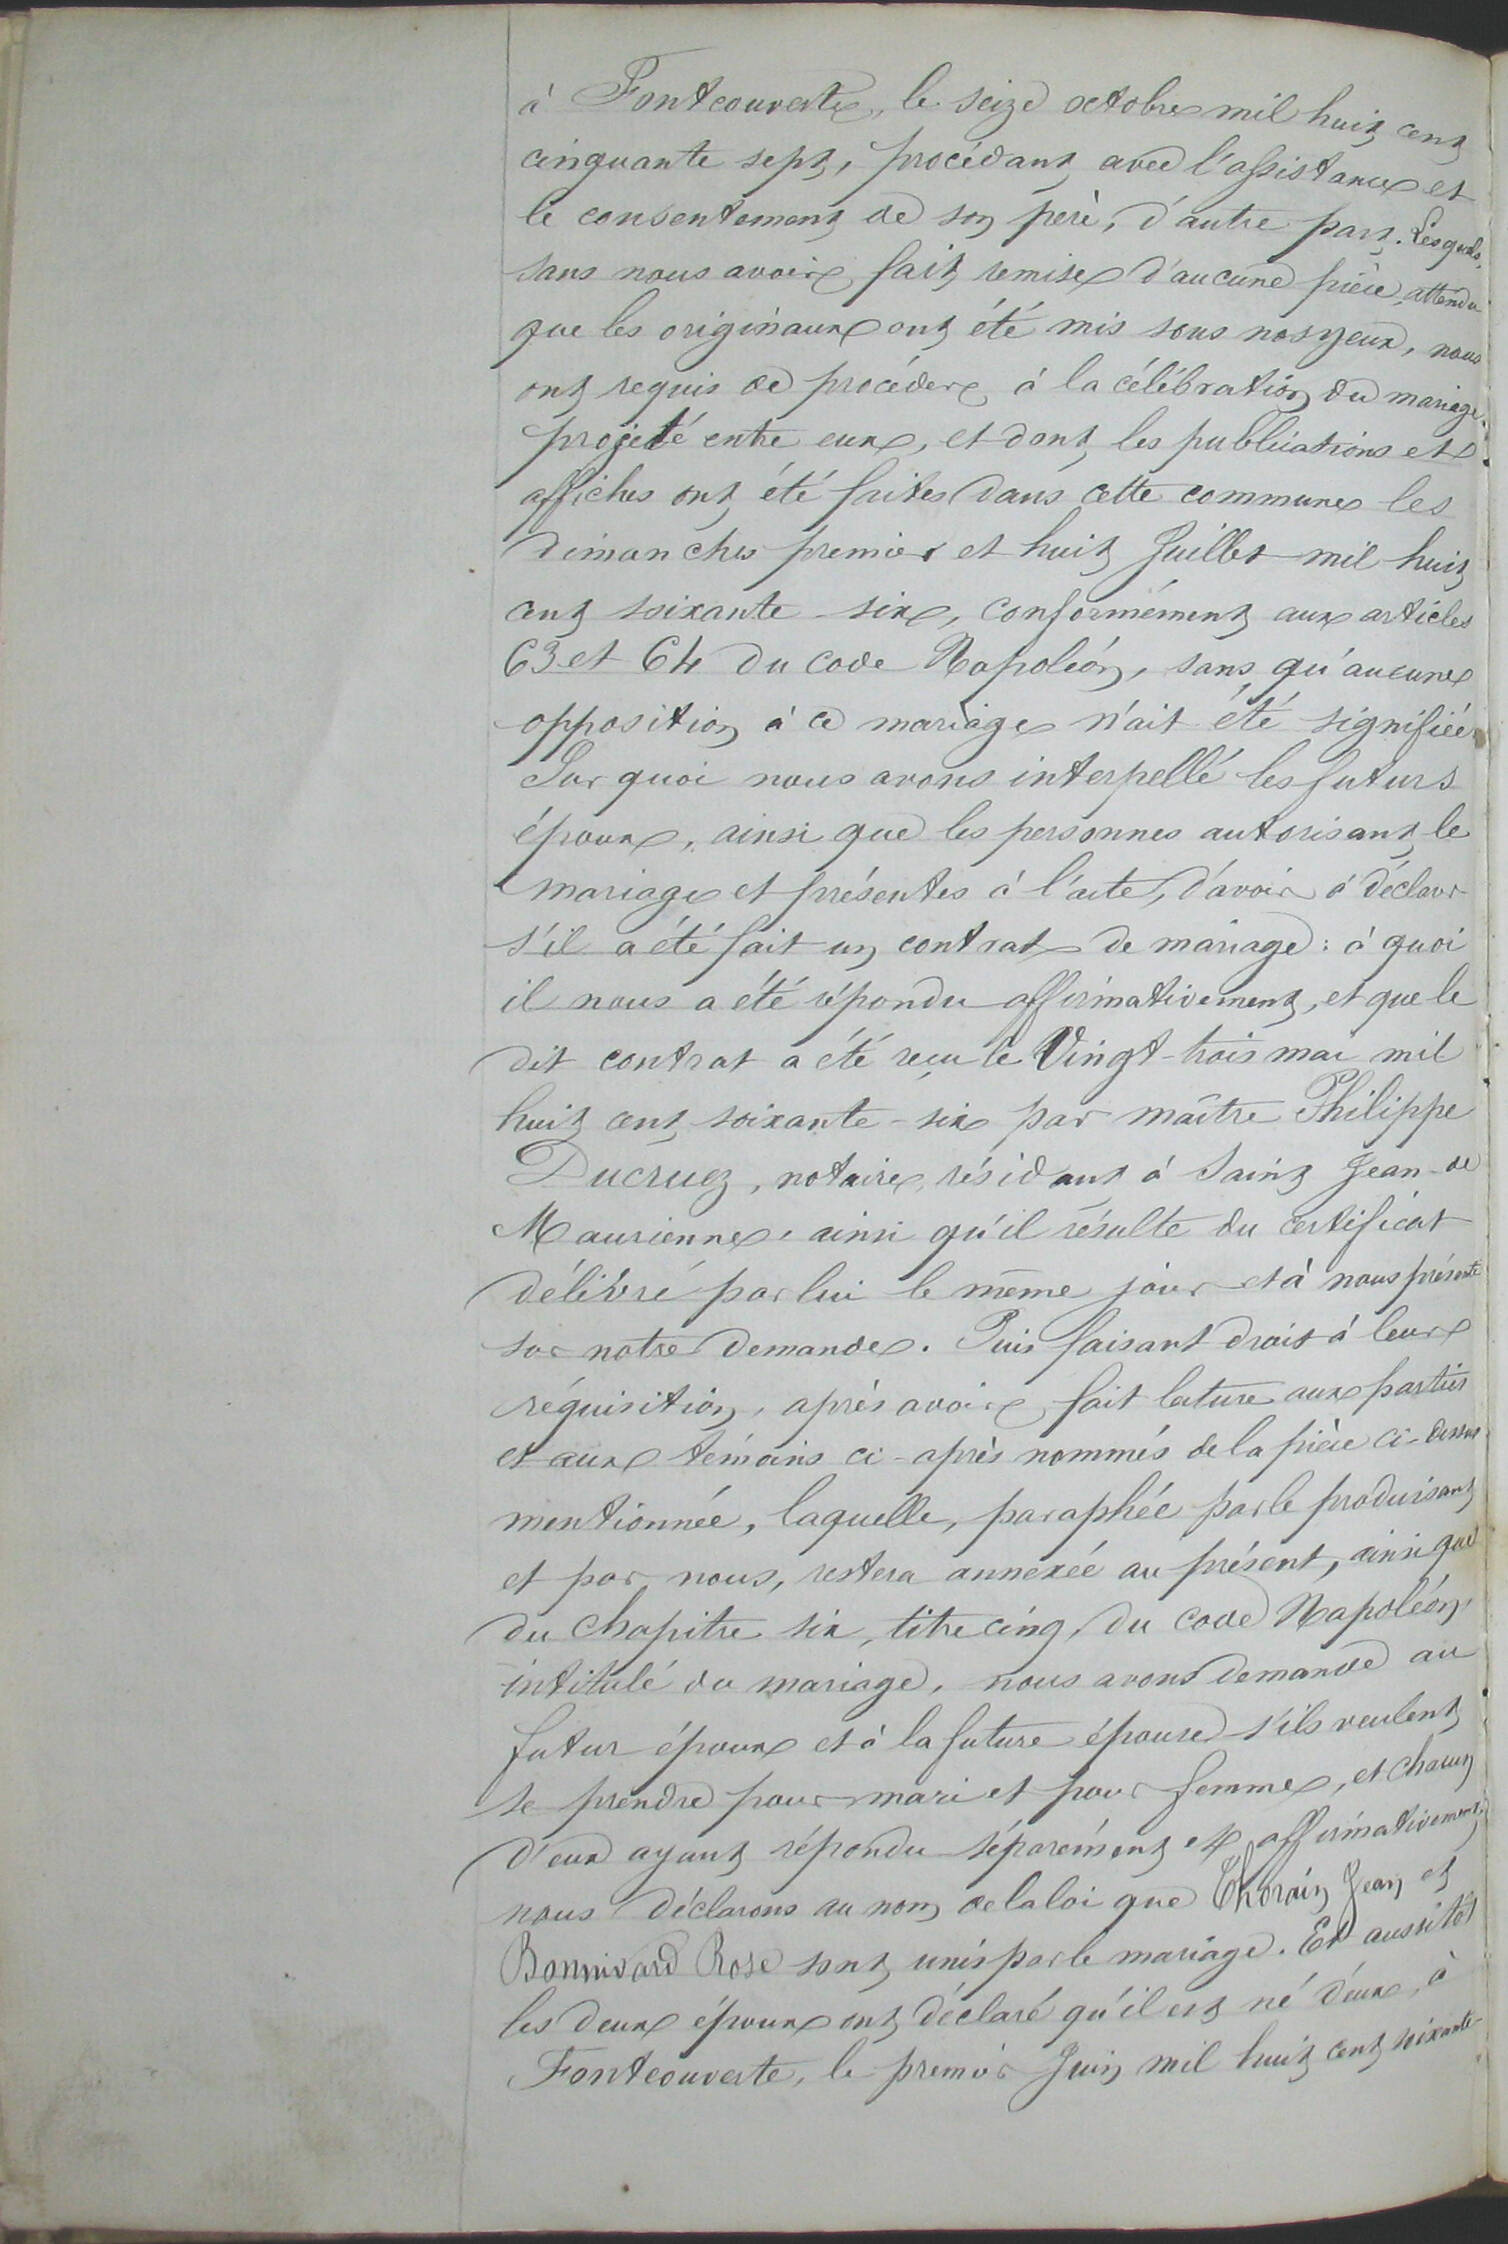 à Fontcouverte, le seize octobre mil huit cent
cinquante sept, procédant avec l'assistance et
le consentement de son père, d'autre part. Lesquels,
sans nous avoir fait remise d'aucune pièce, attendu
que les originaux ont été mis sous nos yeux, nous
ont requis de procéder à la célébration du mariage
projeté entre eux, et dont les publications et
affiches ont été faites dans cette commune les
dimanches premier et huit Juillet mil huit
cent soixante-six, conformément aux articles
63 et 64 du code Napoléon, sans qu'aucune
opposition à ce mariage n'ait été signifiée.
Sur quoi nous avons interpellé les futurs
époux, ainsi que les personnes autorisant le
mariage et présentes à l'acte, d'avoir à déclarer
s'il a été fait un contrat de mariage : à quoi
il nous a été répondu affirmativement, et que le
dit contrat a été reçu le Vingt-trois mai mil
huit cent soixante-six par maître Philippe
Ducruez, notaire, résidant à Saint Jean-de
Maurienne, ainsi qu'il résulte du certificat
délivré par lui le même jour et à nous présenté
sur notre demande. Puis faisant droit à leur
réquisition, après avoir fait lecture aux parties
et aux témoins ci-après nommés de la pièce ci-dessus
mentionnée, laquelle, paraphée par le produisant
et par nous, restera annexée au présent, ainsi que
du chapitre six, titre cinq, du code Napoléon,
intitulé du mariage, nous avons demandé au
futur époux et à la future épouse s'ils veulent
se prendre pour mari et pour femme, et chacun
d'eux ayant répondu séparément et affirmativement,
nous déclarons au nom de la loi que Thorain Jean et
Bonnivard Rose sont unis par le mariage. Et aussitôt
les deux époux ont déclaré qu'il est né d'eux, à
Fontcouverte, le premier Juin mil huit cent soixante-